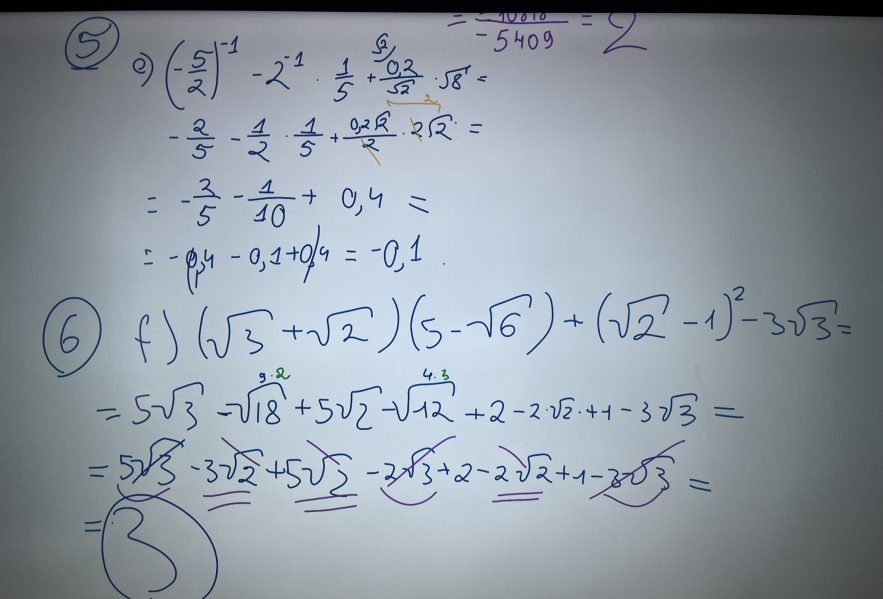 = -10818/-5409 = 2
5
e) (-5/2)^-1 - 2^-1 · 1/5 + 0,2/√2 · √8 =
√2)
2
-2/5 - 1/2 · 1/5 + 0,2√2/2 · 2√2 =
= -2/5 - 1/10 + 0,4 =
= -0,4 - 0,1 + 0,4 = -0,1.
6 f) (√3 + √2)(5 - √6) + (√2 - 1)^2 - 3√3 =
9·2 4·3
= 5√3 - √18 + 5√2 - √12 + 2 - 2·√2·+1 - 3√3 =
= 5√3 - 3√2 + 5√2 - 2√3 + 2 - 2√2 + 1 - 3√3 =
= 3